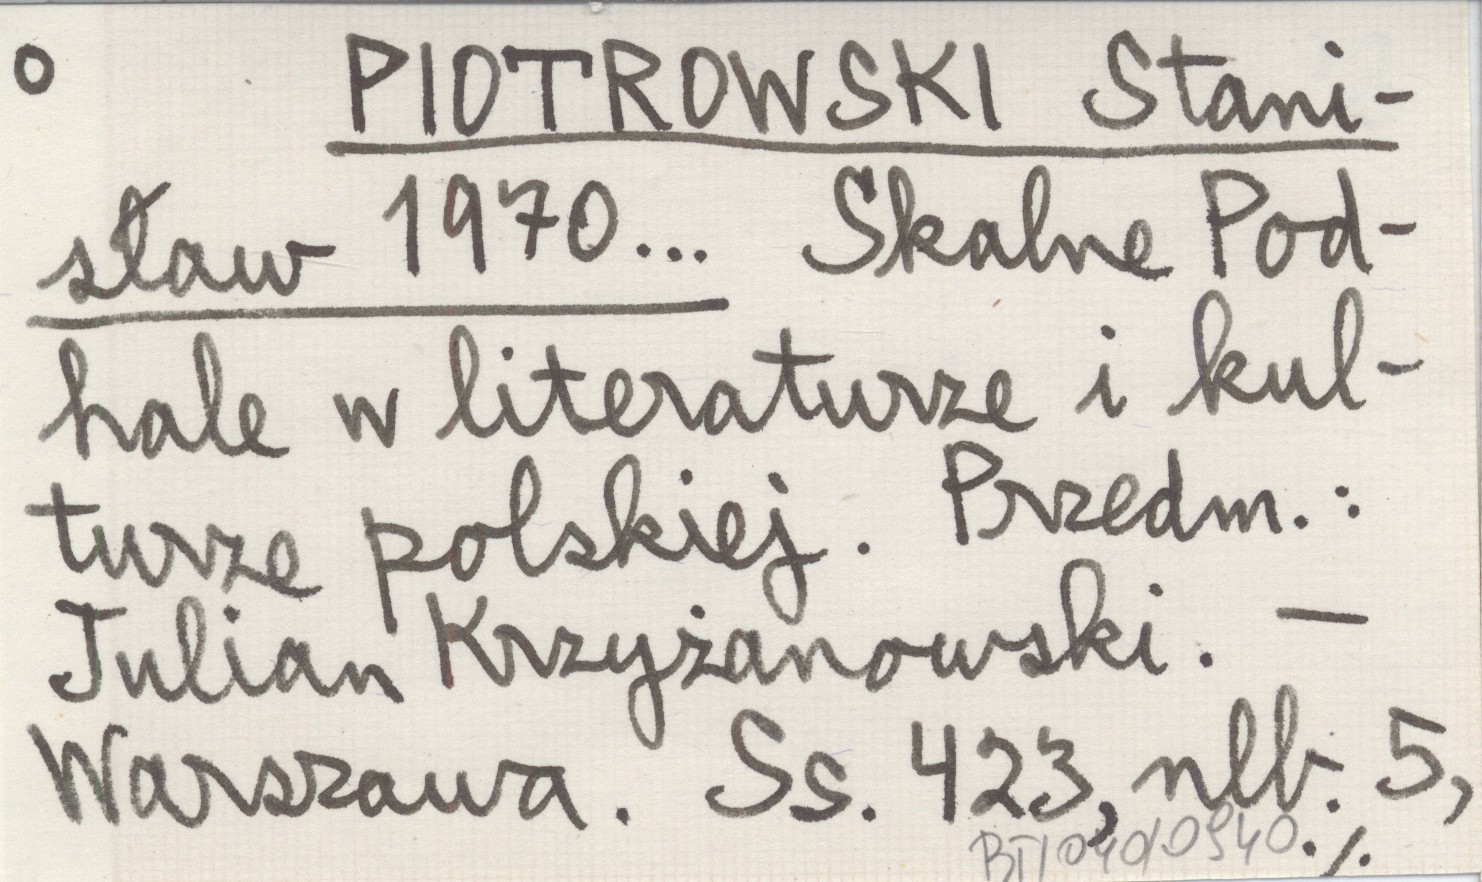 o PIOTROWSKI Stani-
sław 1970... Skalne Pod-
hale w literaturze i kul-
turze polskiej. Przedm.:
Julian Krzyżanowski. —
Warszawa. Ss. 423, nlb. 5,
BT/040/0940 ./.